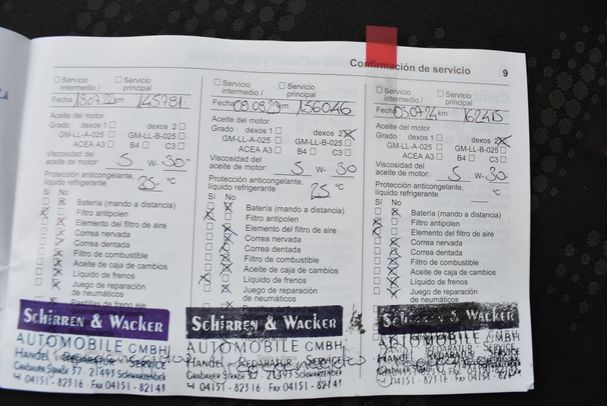 Confirmación de servicio 9
Servicio intermedio /
Servicio principal
Fecha 18.07.22 km 145781
Aceite del motor
Grado : dexos 1 dexos 2
GM-LL-A-025 GM-LL-B-025
ACEA A3 B4 C3
Viscosidad del
aceite de motor: 5 W- 30
Protección anticongelante,
líquido refrigerante 25 °C
Si No
Batería (mando a distancia)
Filtro antipolen
Elemento del filtro de aire
Correa nervada
Correa dentada
Filtro de combustible
Aceite de caja de cambios
Líquido de frenos
Juego de reparación
de neumáticos
SCHIRREN & WACKER
AUTOMOBILE GMBH
HANDEL REPARATUR SERVICE
GRABAUER STRAßE 37 · 21493 SCHWARZENBEK
04151 - 82316 · FAX 04151 - 82143
Servicio intermedio /
Servicio principal
Fecha 09.08.23 km 156046
Aceite del motor
Grado : dexos 1 dexos 2
GM-LL-A-025 GM-LL-B-025
ACEA A3 B4 C3
Viscosidad del
aceite de motor: 5 W- 30
Protección anticongelante,
líquido refrigerante 25 °C
Si No
Batería (mando a distancia)
Filtro antipolen
Elemento del filtro de aire
Correa nervada
Correa dentada
Filtro de combustible
Aceite de caja de cambios
Líquido de frenos
Juego de reparación
de neumáticos
SCHIRREN & WACKER
AUTOMOBILE GMBH
HANDEL REPARATUR SERVICE
GRABAUER STRAßE 37 · 21493 SCHWARZENBEK
04151 - 82316 · FAX 04151 - 82143
Servicio intermedio /
Servicio principal
Fecha 03.07.24 km 162415
Aceite del motor
Grado : dexos 1 dexos 2
GM-LL-A-025 GM-LL-B-025
ACEA A3 B4 C3
Viscosidad del
aceite de motor: 5 W- 30
Protección anticongelante,
líquido refrigerante °C
Si No
Batería (mando a distancia)
Filtro antipolen
Elemento del filtro de aire
Correa nervada
Correa dentada
Filtro de combustible
Aceite de caja de cambios
Líquido de frenos
Juego de reparación
de neumáticos
SCHIRREN & WACKER
AUTOMOBILE GMBH